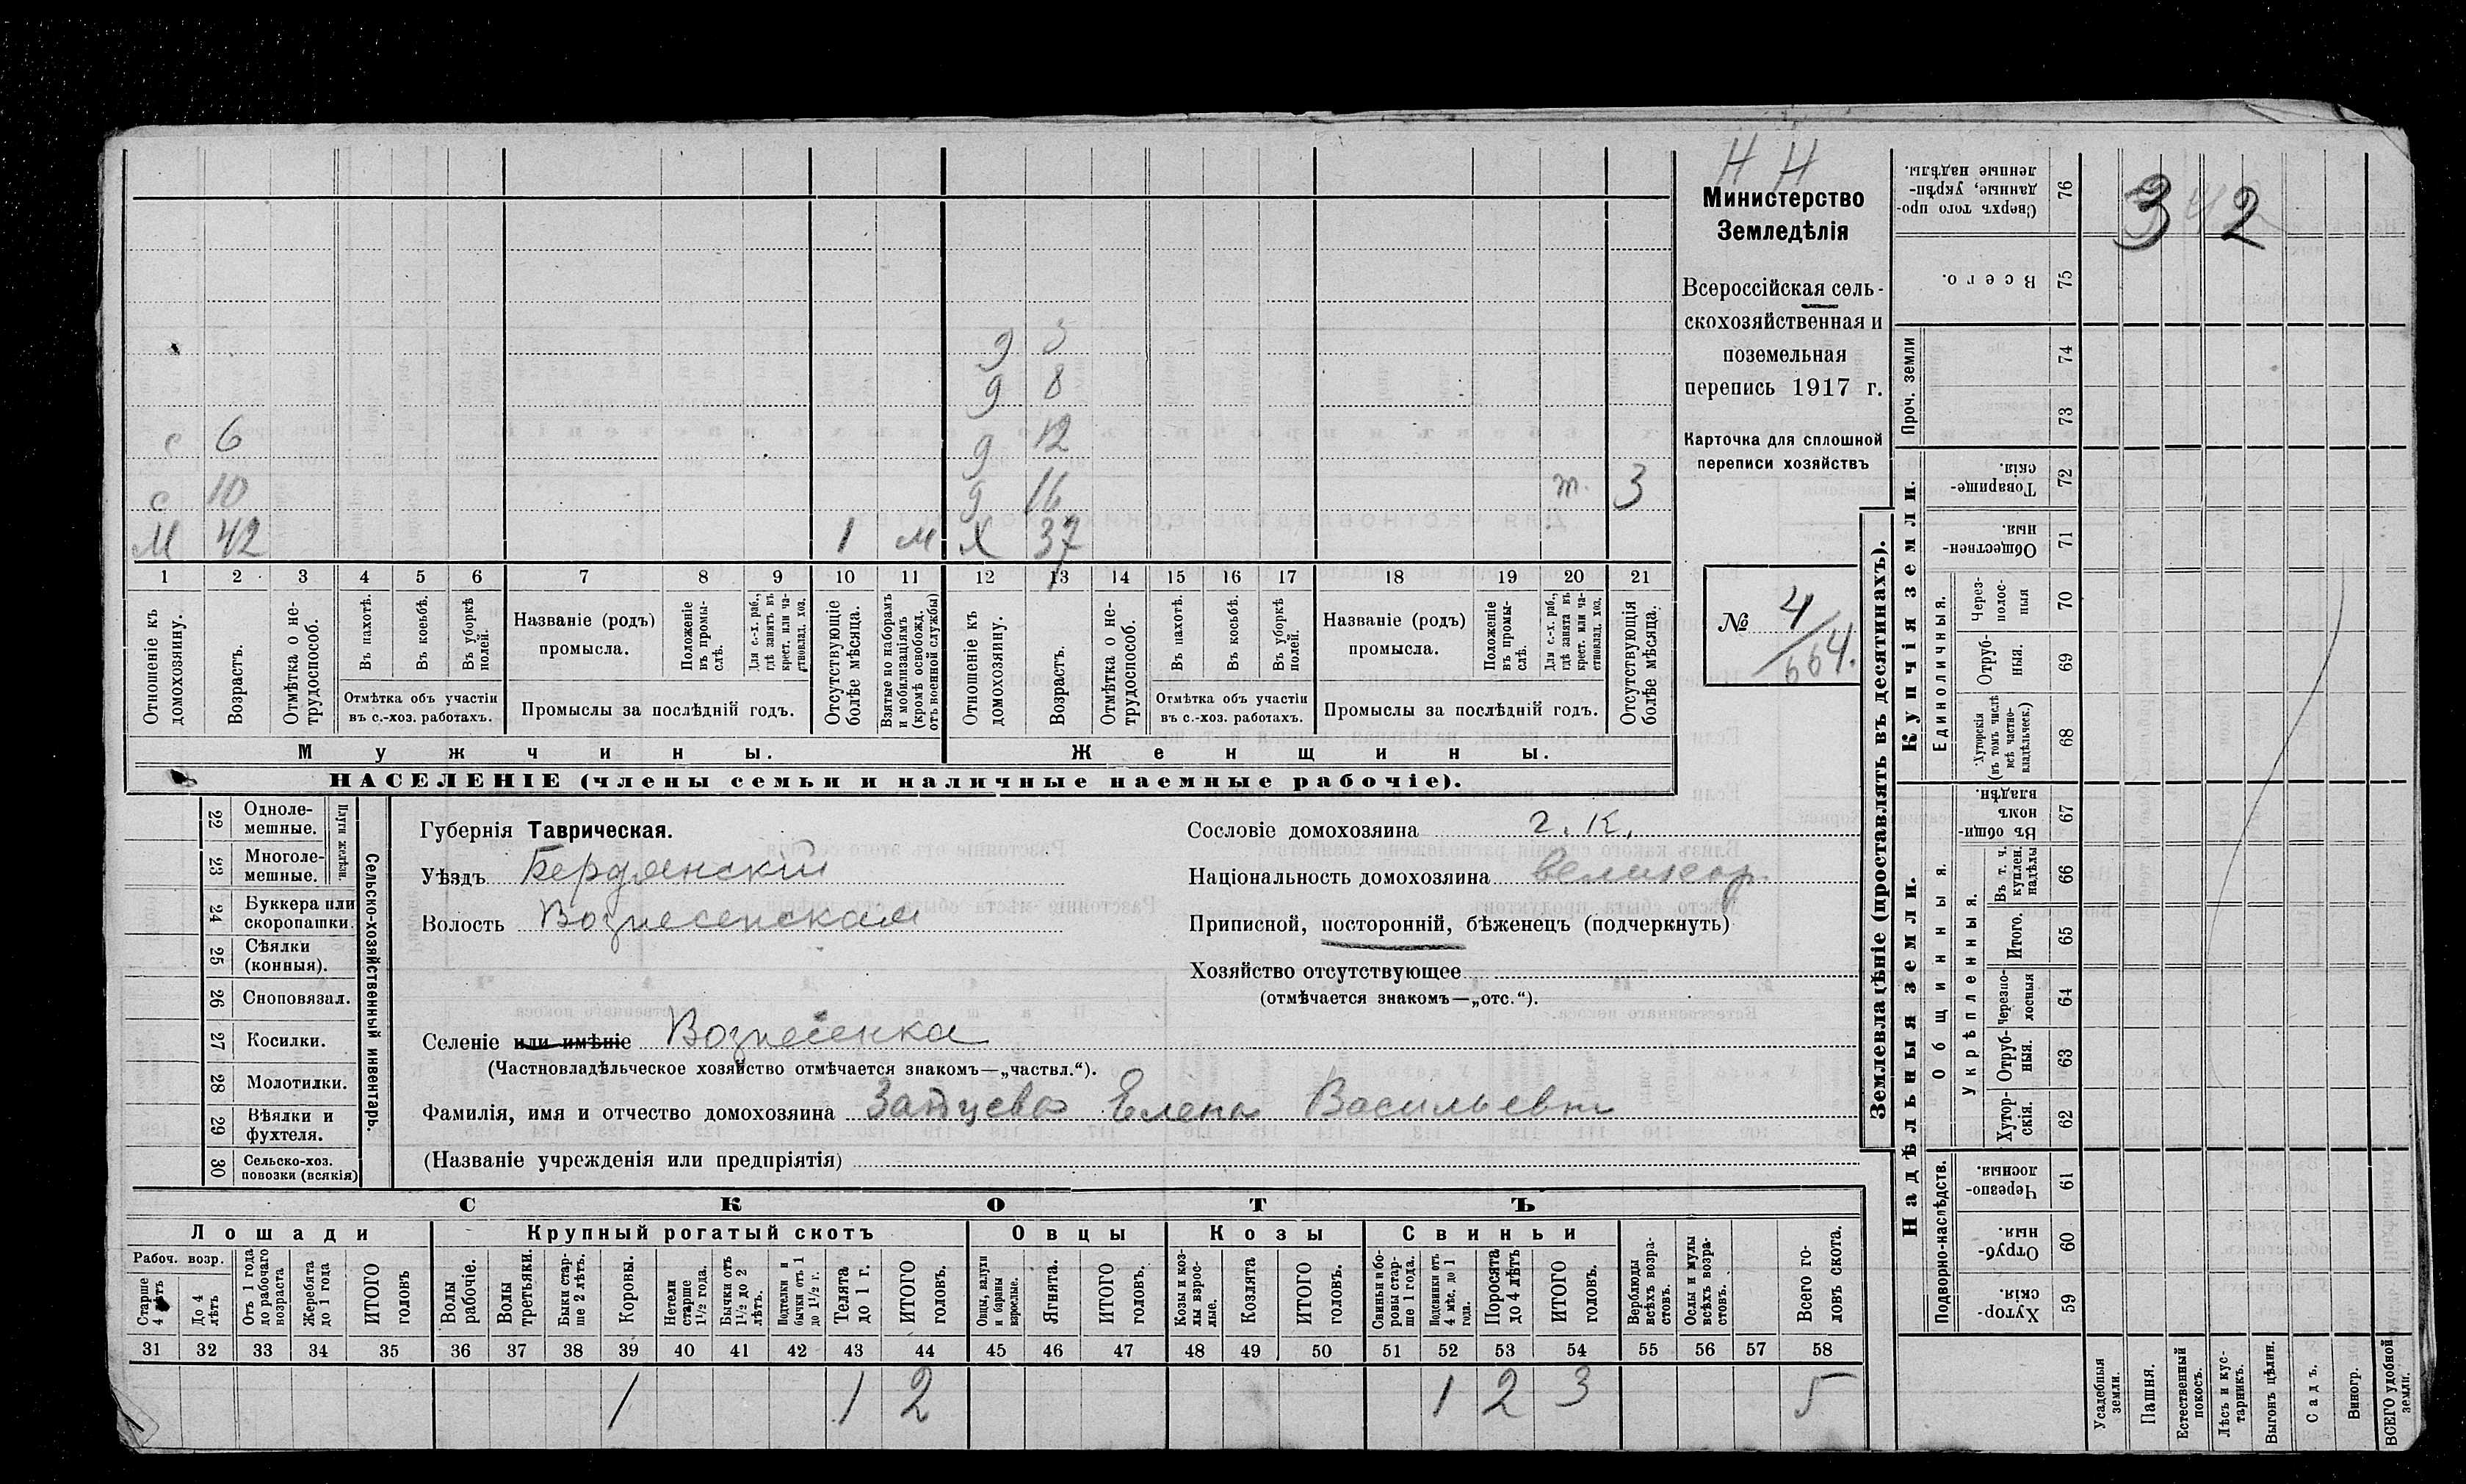 Н Н
Министерство
Земледѣлія
Всероссійская сель-
скохозяйственная и
поземельная
перепись 1917 г.
Карточка для сплошной
переписи хозяйствъ
№ 4/664.
д
д 8
с 6 д 12
с 10 д 16 т. 3
М 42 1 м Х 37
1 2 3 4 5 6 7 8 9 10 11 12 13 14 15 16 17 18 19 20 21
Отношеніе къ домохозяину.
Возрастъ.
Отмѣтка о не-трудоспособ.
Въ пахотѣ.
Въ косьбѣ.
Въ уборкѣ полей.
Отмѣтка объ участіи
въ с.-хоз. работахъ.
Названіе (родъ)
промысла.
Положеніе въ промы-слѣ.
Для с.-х. раб., гдѣ занятъ въ крест. или ча-стновлад. хоз.
Промыслы за послѣдній годъ.
Отсутствующіе болѣе мѣсяца.
Взятые по наборамъ и мобилизаціямъ (кромѣ освобожд. отъ военной службы)
Отношеніе къ домохозяину.
Возрастъ.
Отмѣтка о не-трудоспособ.
Въ пахотѣ.
Въ косьбѣ.
Въ уборкѣ полей.
Отмѣтка объ участіи
въ с.-хоз. работахъ.
Названіе (родъ)
промысла.
Положеніе въ промы-слѣ.
Для с.-х. раб., гдѣ занята въ крест. или ча-стновлад. хоз.
Промыслы за послѣдній годъ.
Отсутствующія болѣе мѣсяца.
Мужчины. Женщины.
НАСЕЛЕНІЕ (члены семьи и наличные наемные рабочіе).
Сельско-хозяйственный инвентарь.
Плуги желѣзн.
22 Одноле-мешные.
23 Многоле-мешные.
24 Буккера или скоропашки.
25 Сѣялки (конныя).
26 Сноповязал.
27 Косилки.
28 Молотилки.
29 Вѣялки и фухтеля.
30 Сельско-хоз. повозки (всякія)
Губернія Таврическая.
Уѣздъ Бердянскій
Волость Вознесенская
Селеніе или имѣніе Вознесенка
(Частновладѣльческое хозяйство отмѣчается знакомъ—„частвл.“).
Фамилія, имя и отчество домохозяина Зайцева Елена Васильевна
(Названіе учрежденія или предпріятія)
Сословіе домохозяина г. к.
Національность домохозяина великор.
Приписной, посторонній, бѣженецъ (подчеркнуть)
Хозяйство отсутствующее
(отмѣчается знакомъ—„отс.“).
СКОТЪ
Лошади Крупный рогатый скотъ Овцы Козы Свиньи
Рабоч. возр.
Старше 4 лѣтъ
До 4 лѣтъ
Отъ 1 года до рабочаго возраста
Жеребята до 1 года
ИТОГО головъ
Волы рабочіе.
Волы третьяки.
Быки стар-ше 2 лѣтъ.
Коровы.
Нетели старше 1½ года.
Бычки отъ 1½ до 2 лѣтъ.
Подтелки и бычки отъ 1 до 1½ г.
Телята до 1 г.
ИТОГО головъ.
Овцы, валухи и бараны взрослые.
Ягнята.
ИТОГО головъ.
Козы и коз-лы взрос-лые.
Козлята
ИТОГО головъ.
Свиньи и бо-ровы стар-ше 1 года.
Подсвинки отъ 4 мѣс. до 1 года.
Поросята до 4 лѣтъ
ИТОГО головъ.
Верблюды всѣхъ возра-стовъ.
Ослы и мулы всѣхъ возра-стовъ.
Всего го-ловъ скота.
31 32 33 34 35 36 37 38 39 40 41 42 43 44 45 46 47 48 49 50 51 52 53 54 55 56 57 58
1 1 2 1 2 3 5
Землевладѣніе (проставлять въ десятинахъ).
Купчія земли.
Надѣльныя земли.
Сверхъ того про-данные, укрѣп-ленные надѣлы. 76 3 2
Всего. 75
Проч. земли
74
73
Товарище-скія. 72
Обществен-ныя. 71
Единоличныя.
Через-полос-ныя 70
Отруб-ныя. 69
Хуторскія (въ томъ числѣ всѣ частно-владѣльческ.) 68
Общинныя.
Въ общин-номъ владѣн. 67
Укрѣпленныя.
Въ т. ч. куплен. надѣлы 66
Итого. 65
Черезпо-лосныя 64
Отруб-ныя. 63
Хутор-скія. 62
Подворно-наслѣдств.
Черезпо-лосныя. 61
Отруб-ныя 60
Хутор-скія. 59
Усадебныя земли.
Пашня.
Естественный покосъ.
Лѣсъ и кус-тарникъ.
Выгонъ цѣлин.
Садъ.
Виногр.
ВСЕГО удобной земли.